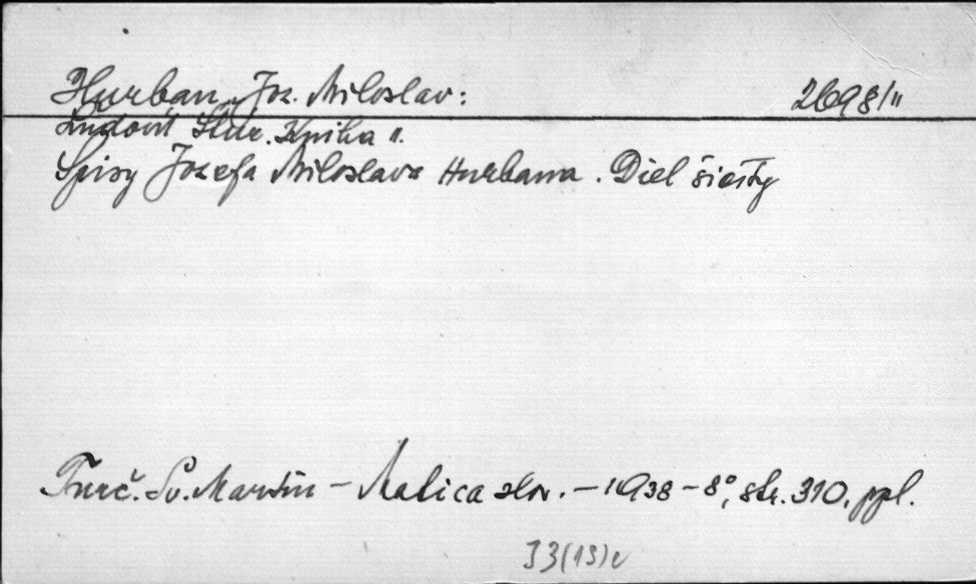 Hurban, Joz. Miloslav: 2698/II
Ľudovít Štúr. Kniha II.
Spisy Jozefa Miloslava Hurbana. Diel šiesty
Turč. Sv. Martin – Matica slov. – 1938 – 8°, str. 310, ppl.